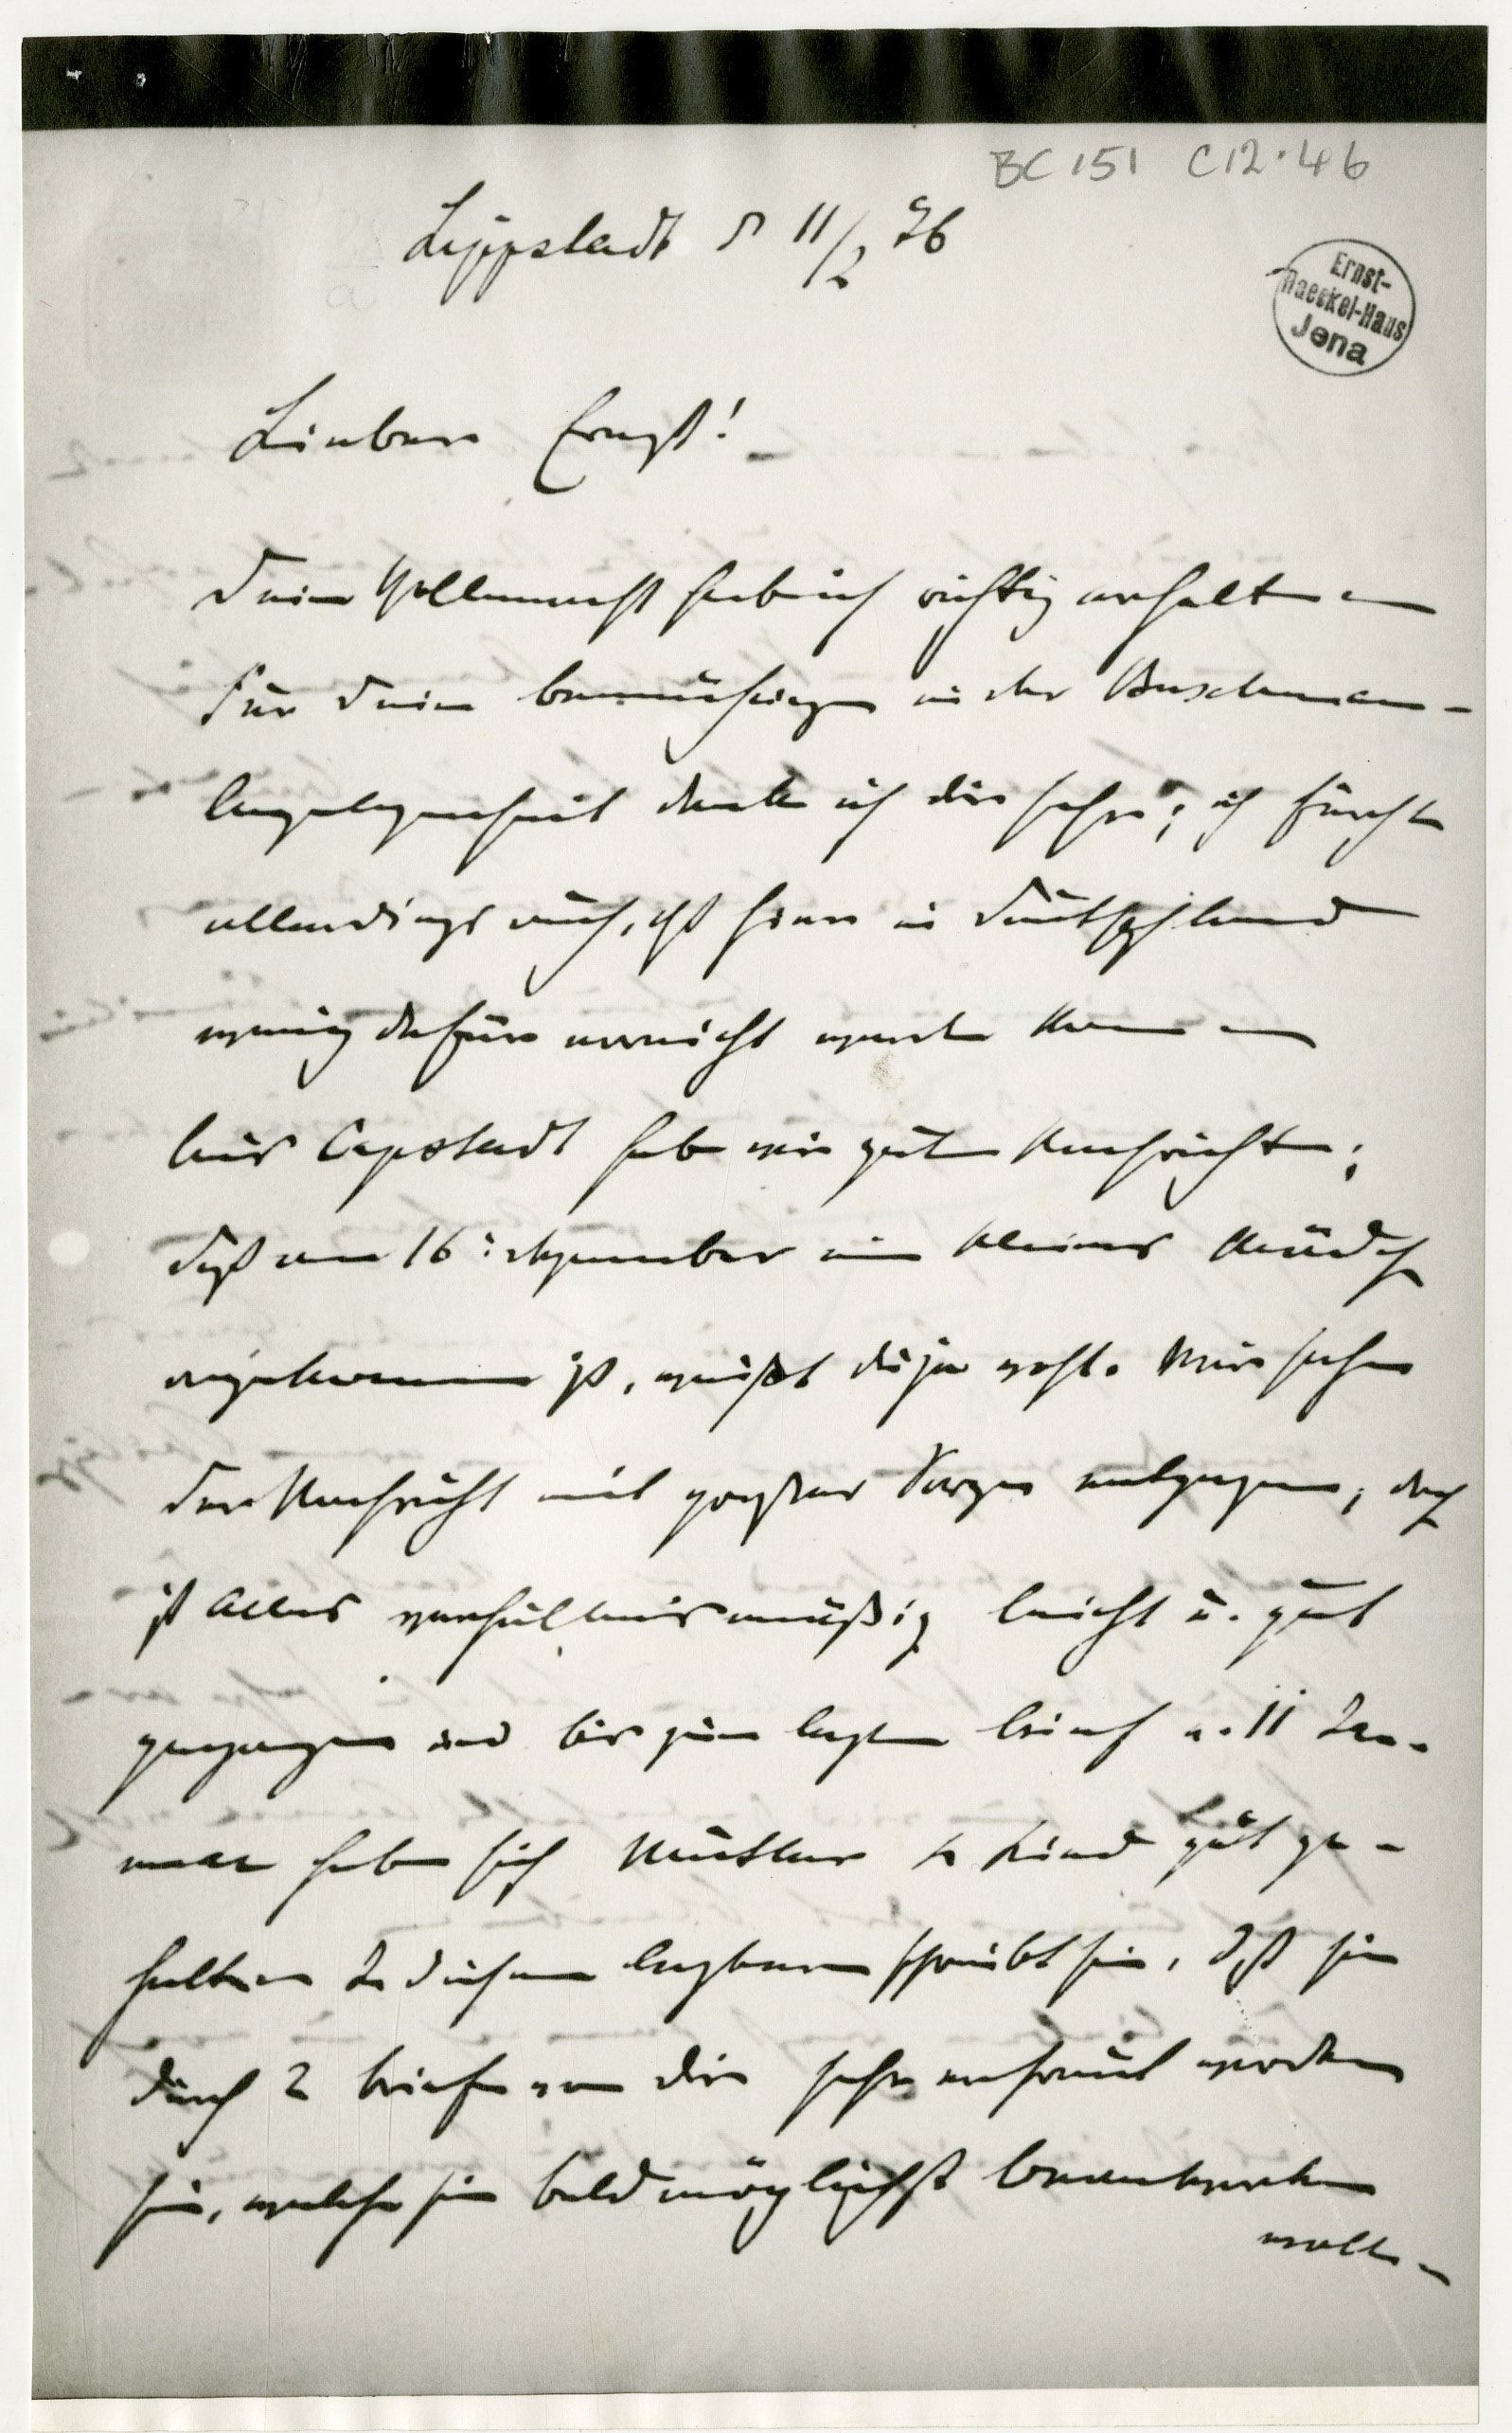 BC 151 C12.46
Lippstadt d 11/2 76
Ernst-
Haeckel-Haus
Jena
Lieber Ernst!
Deine Vollmacht hab ich richtig erhalten
Für Deine Bemühungen in der Buschman-
Angelegenheit danke ich dir sehr; ich fürchte
allerdings auch, daß hier in Deutschland
wenig dafür erreicht werden kann
Aus Capstadt habe wir gute Nachrichten;
Daß am 16: dezember ein kleines Mädch
angekommen ist, weißt du ja wohl. Wir sahen
der Nachricht mit großer Sorge entgegen, doch
ist Alles verhältnismäßig leicht u. gut
gegangen und bis zum letzten Brief v. 11 Jan-
uar haben sich Mutter & Kind gut ge-
halten In diesem letzteren schreibt sie, daß sie
durch 2 Briefe von dir sehr erfreut worden
sei, welche sie baldmöglichst beantworten
wolle